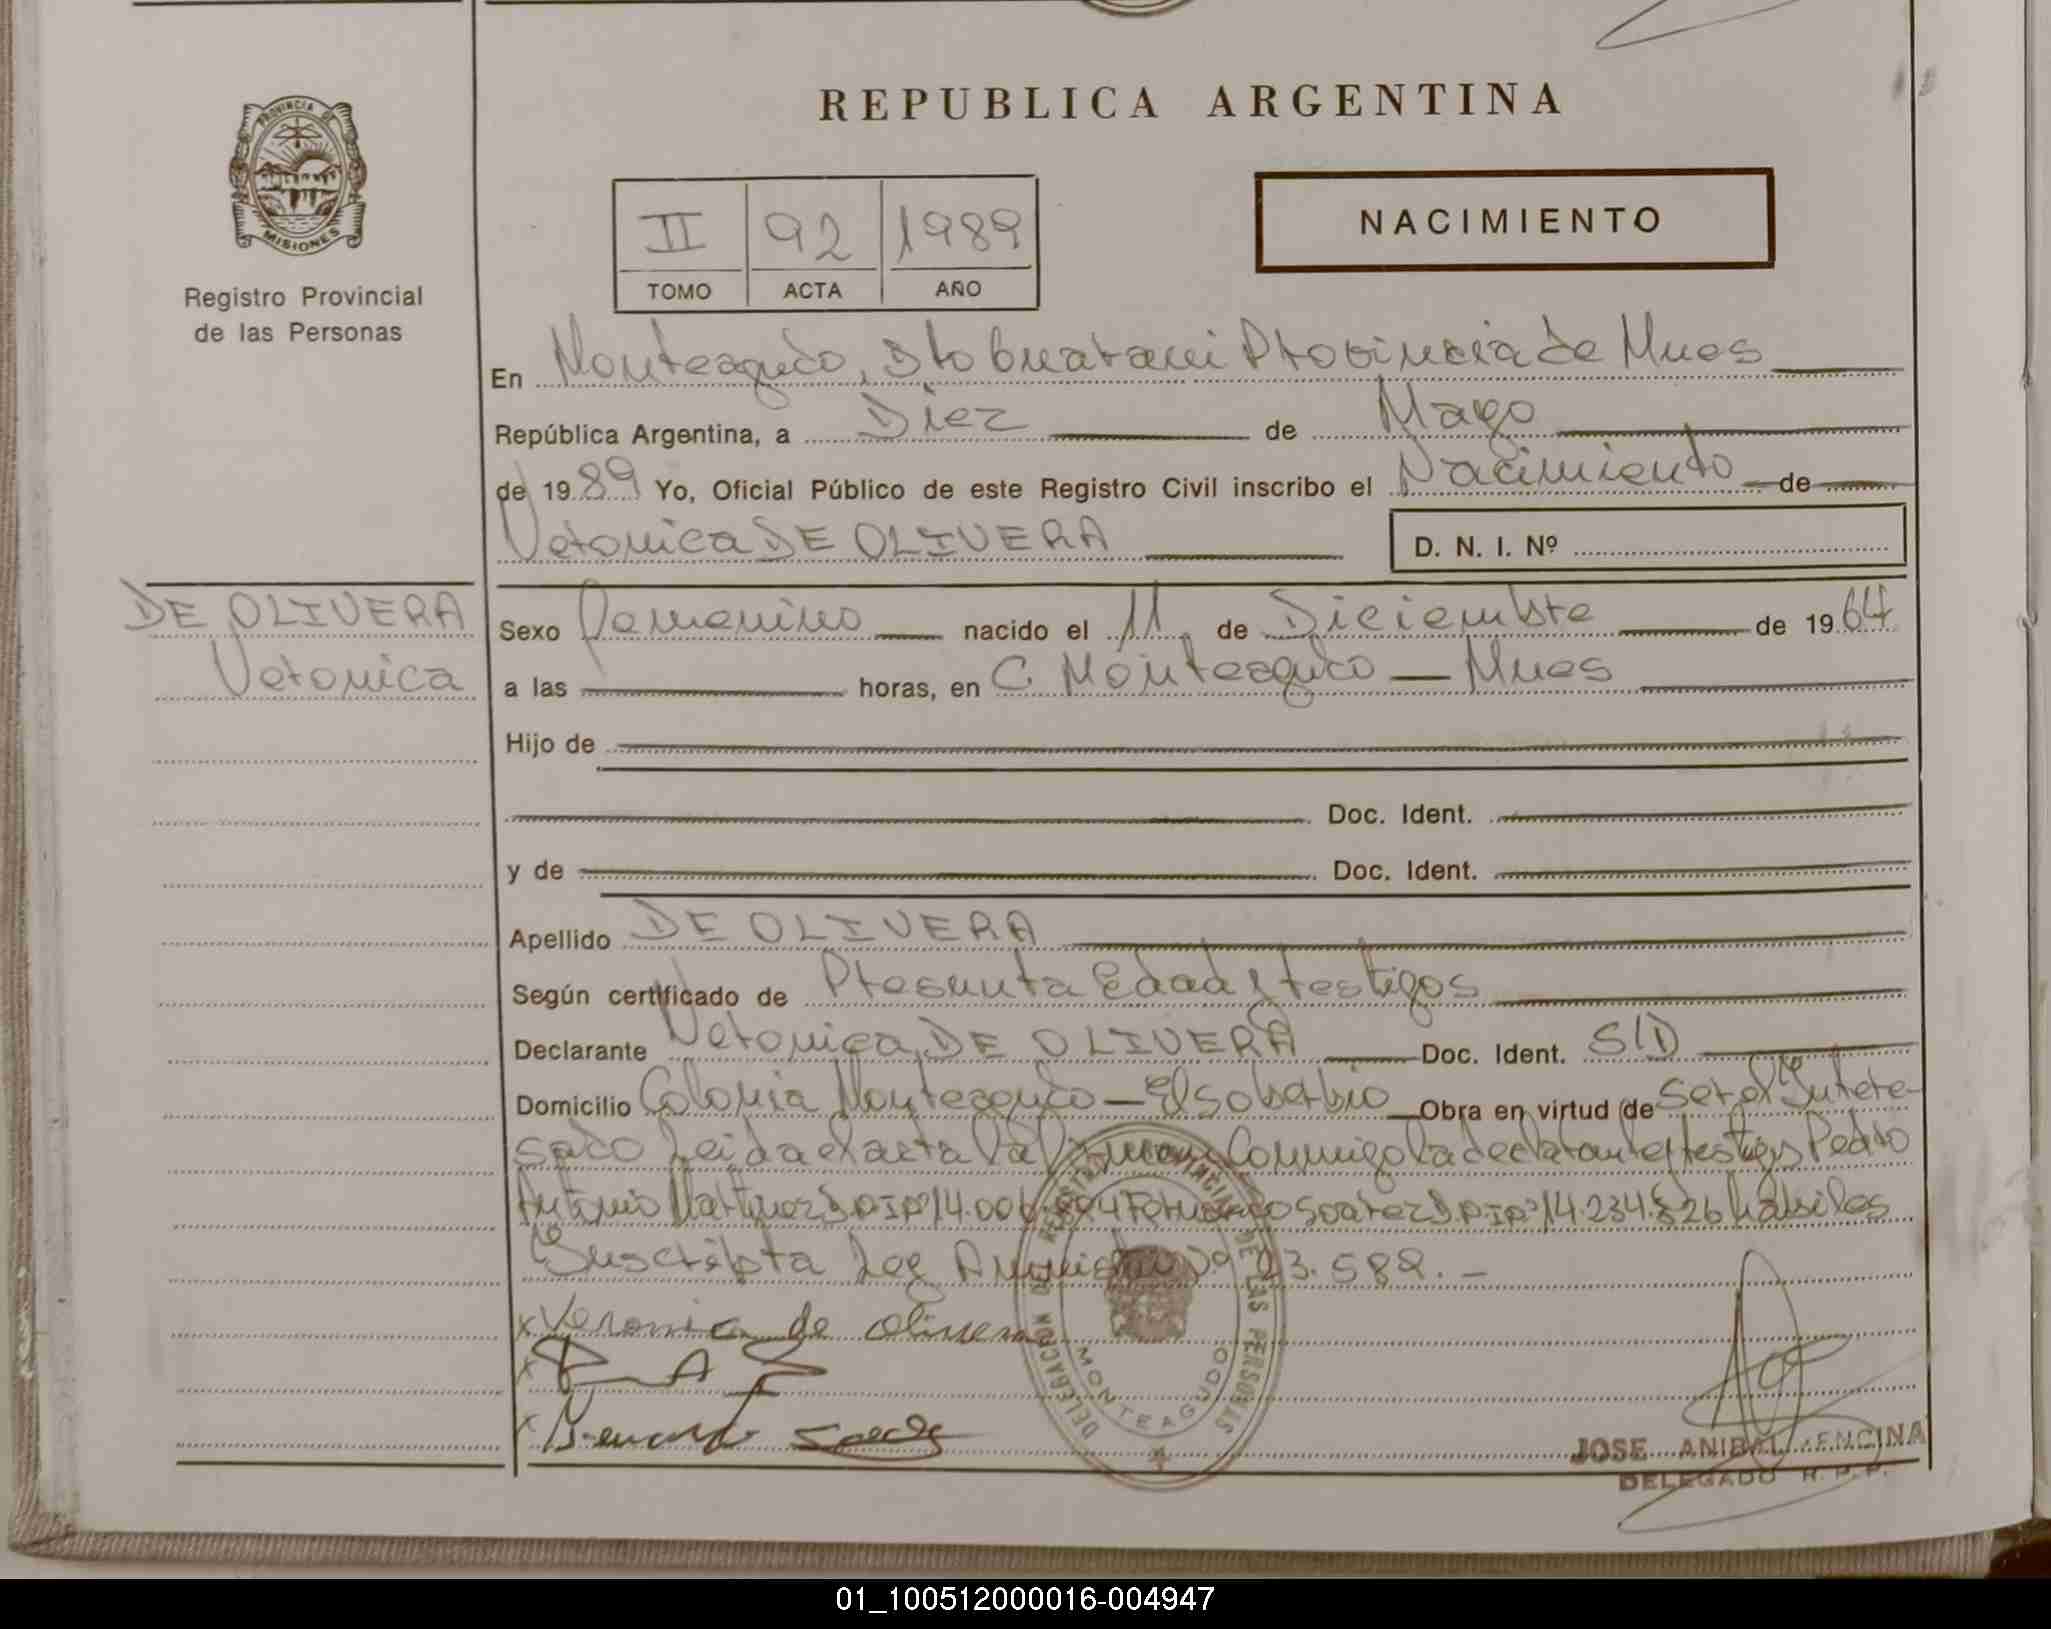 REPUBLICA ARGENTINA
PROVINCIA DE
MISIONES
Registro Provincial
de las Personas
NACIMIENTO
II 92 1989
TOMO ACTA AÑO
En Monteagudo, Dto Guarani Provincia de Mnes
República Argentina, a Diez de Mayo
de 1989 Yo, Oficial Público de este Registro Civil inscribo el Nacimiento de
Veronica DE OLIVERA D. N. I. Nº
DE OLIVERA
Veronica
Sexo Femenino nacido el 11 de Diciembre de 1964
a las horas, en C. Monteagudo — Mnes
Hijo de
Doc. Ident.
y de Doc. Ident.
Apellido DE OLIVERA
Según certificado de Presunta Edad y testigos
Declarante Veronica DE OLIVERA Doc. Ident. S/D
Domicilio Colonia Monteagudo — El Soberbio Obra en virtud de ser el Intere-
sado Leida el acta la firman Conmigo la declarante y testigos Pedro
Antonio Martinez 14.006. Soarez 14.234.826 habiles
Suscripta Ley Amnistia Nº 23.589. —
x Veronica de olivera
x
x
DELEGACION REGISTRO PROVINCIAL DE LAS PERSONAS
MONTEAGUDO
JOSE ANIBAL ENCINA
DELEGADO R. P. P.
01_100512000016-004947